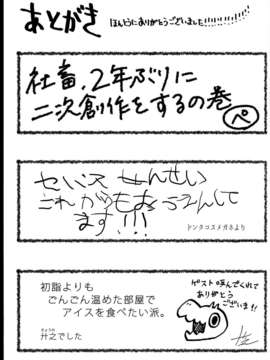 あとがき
ほんとうにありがとうございました!!!!!!!!!!!
社畜、2年ぶりに
二次創作をするの巻
ペ
セバス せんせい
これからもおうえんして
ます!!!
ドンタコスメガネより
初詣よりも
ごんごん温めた部屋で
アイスを食べたい派。
升之でした
ゲスト呼んでくれて
ありがとう
ございます!!